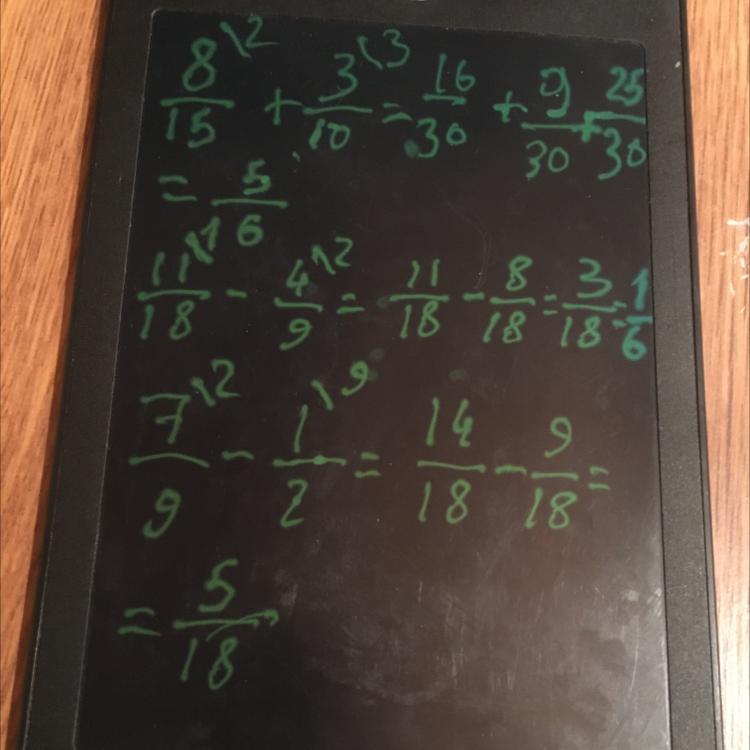 8/15 \2 + 3/10 \3 = 16/30 + 9/30 = 25/30
= 5/6
11/18 \1 - 4/9 \2 = 11/18 - 8/18 = 3/18 = 1/6
7/9 \2 - 1/2 \9 = 14/18 - 9/18 =
= 5/18